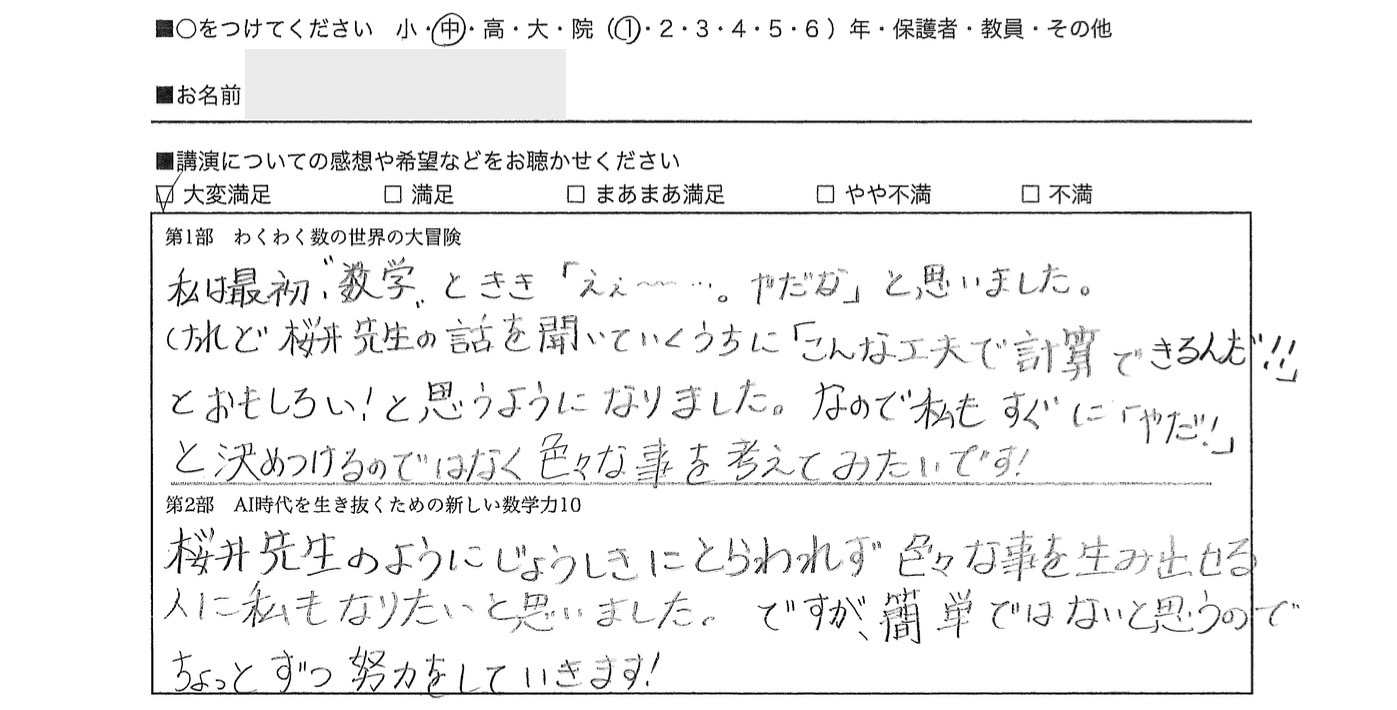 ■○をつけてください　小・中・高・大・院（1・2・3・4・5・6）年・保護者・教員・その他
■お名前
■講演についての感想や希望などをお聴かせください
☑ 大変満足　□ 満足　□ まあまあ満足　□ やや不満　□ 不満
第1部　わくわく数の世界の大冒険
私は最初〝数学〟ときき「えぇ〜〜…。やだな」と思いました。
けれど桜井先生の話を聞いていくうちに「こんな工夫で計算できるんだ!!」
とおもしろい!と思うようになりました。なので私もすぐに「やだ!」
と決めつけるのではなく色々な事を考えてみたいです!
第2部　AI時代を生き抜くための新しい数学力10
桜井先生のようにじょうしきにとらわれず色々な事を生み出せる
人に私もなりたいと思いました。ですが、簡単ではないと思うので
ちょっとずつ努力をしていきます!